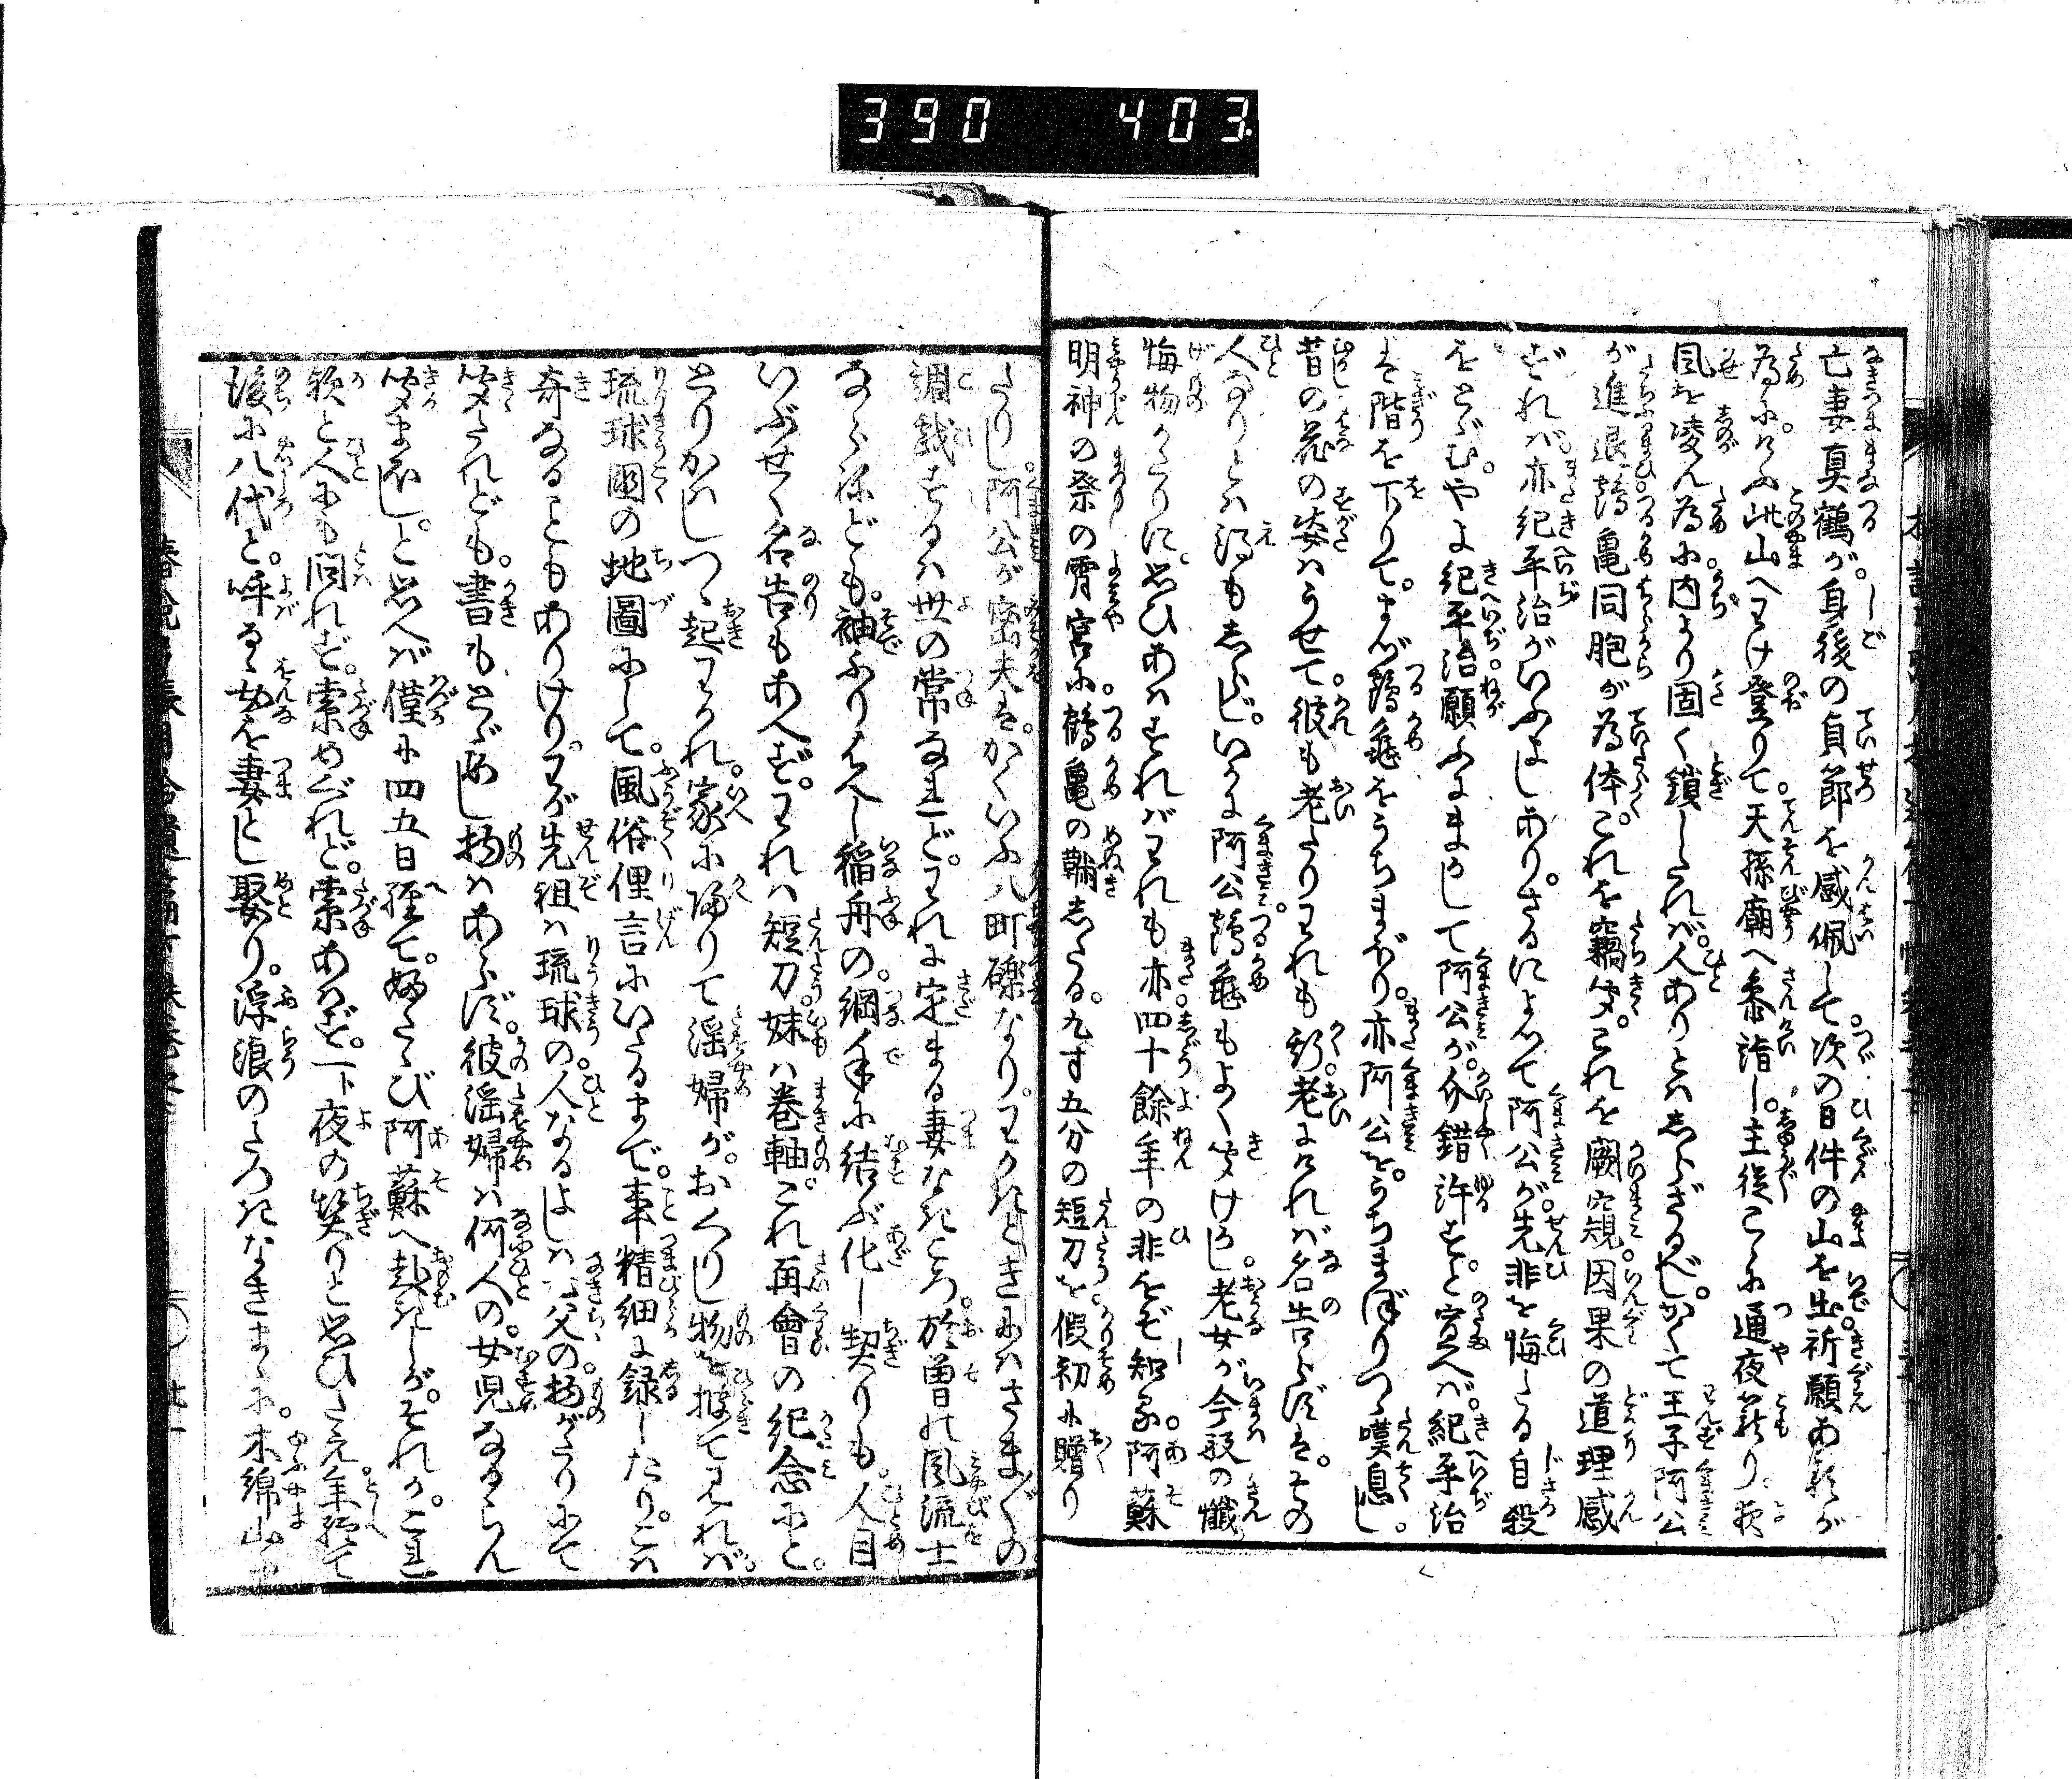 390 403
亡妻真鶴が。身後の貞節を感佩して。次の日件の山を出。祈願あるが
為に。けふ此山へわけ登りて。天孫廟へ参詣し。主従こゝに通夜籠り。夜
風を凌ん為に。内より固く鎖したれば。人ありとはしらざるべし。かくて王子阿公
が進退。鶴亀同胞が為体。これを竊聞。これを闕窺。因果の道理感
ずれば。亦紀平治がいふよしあり。さるによつて阿公が。先非を悔たる自殺
をとゞむ。やよ紀平治。願ふよまかして阿公が。介錯許す。と宣へば。紀平治
は階を下りて。まづ鶴亀をうちまもり。亦阿公を。うちまぼりつゝ嘆息し。
昔の花の姿はうせて。彼も老たりわれも又。老にければ名告らずは。その
人なりとは得もしらじ。いかに阿公。鶴亀もよく聞けかし。老女が今般の懺
悔物がたりに。思ひあはすればわれも亦。四十餘年の非をぞ知る。阿蘇
明神の祭の宵宮に。鶴亀の鞆したる。九寸五分の短刀を。假初に贈り
たりし。阿公が密夫は。かくいふ八町礫なり。わかきときにはさまざまの
調戯するは世の常なれど。われに定まる妻なきころ。於曽の風流士
ならねども。袖ふりはへし稲舟の。綱手に結ぶ化し契りも。人目
いぶせく名告もあへず。われは短刀。妹は巻軸。これ再會の紀念にと。
とりかはしつゝ起わかれ。家に帰りて淫婦が。おくりし物を披て見れば。
琉球國の地圖にして。風俗俚言にいたるまで。事精細に録したり。こは
奇なることもありけり。わが先祖は琉球の人なるよしは。亡父の物がたりにて
聞たれども。書もとゞめし物はあらず。彼淫婦は何人の。女児なるらん
聞まほし。と思へば僅に四五日経て。ふたゝび阿蘇へ赴きしが。それか。これ
歟と人にも問れず。索めぐれど。索あはず。一ト夜の契りと思ひたえ。年経て
後に八代と。呼るゝ女を妻とし娶り。浮浪のたつきなきまゝに。木綿山